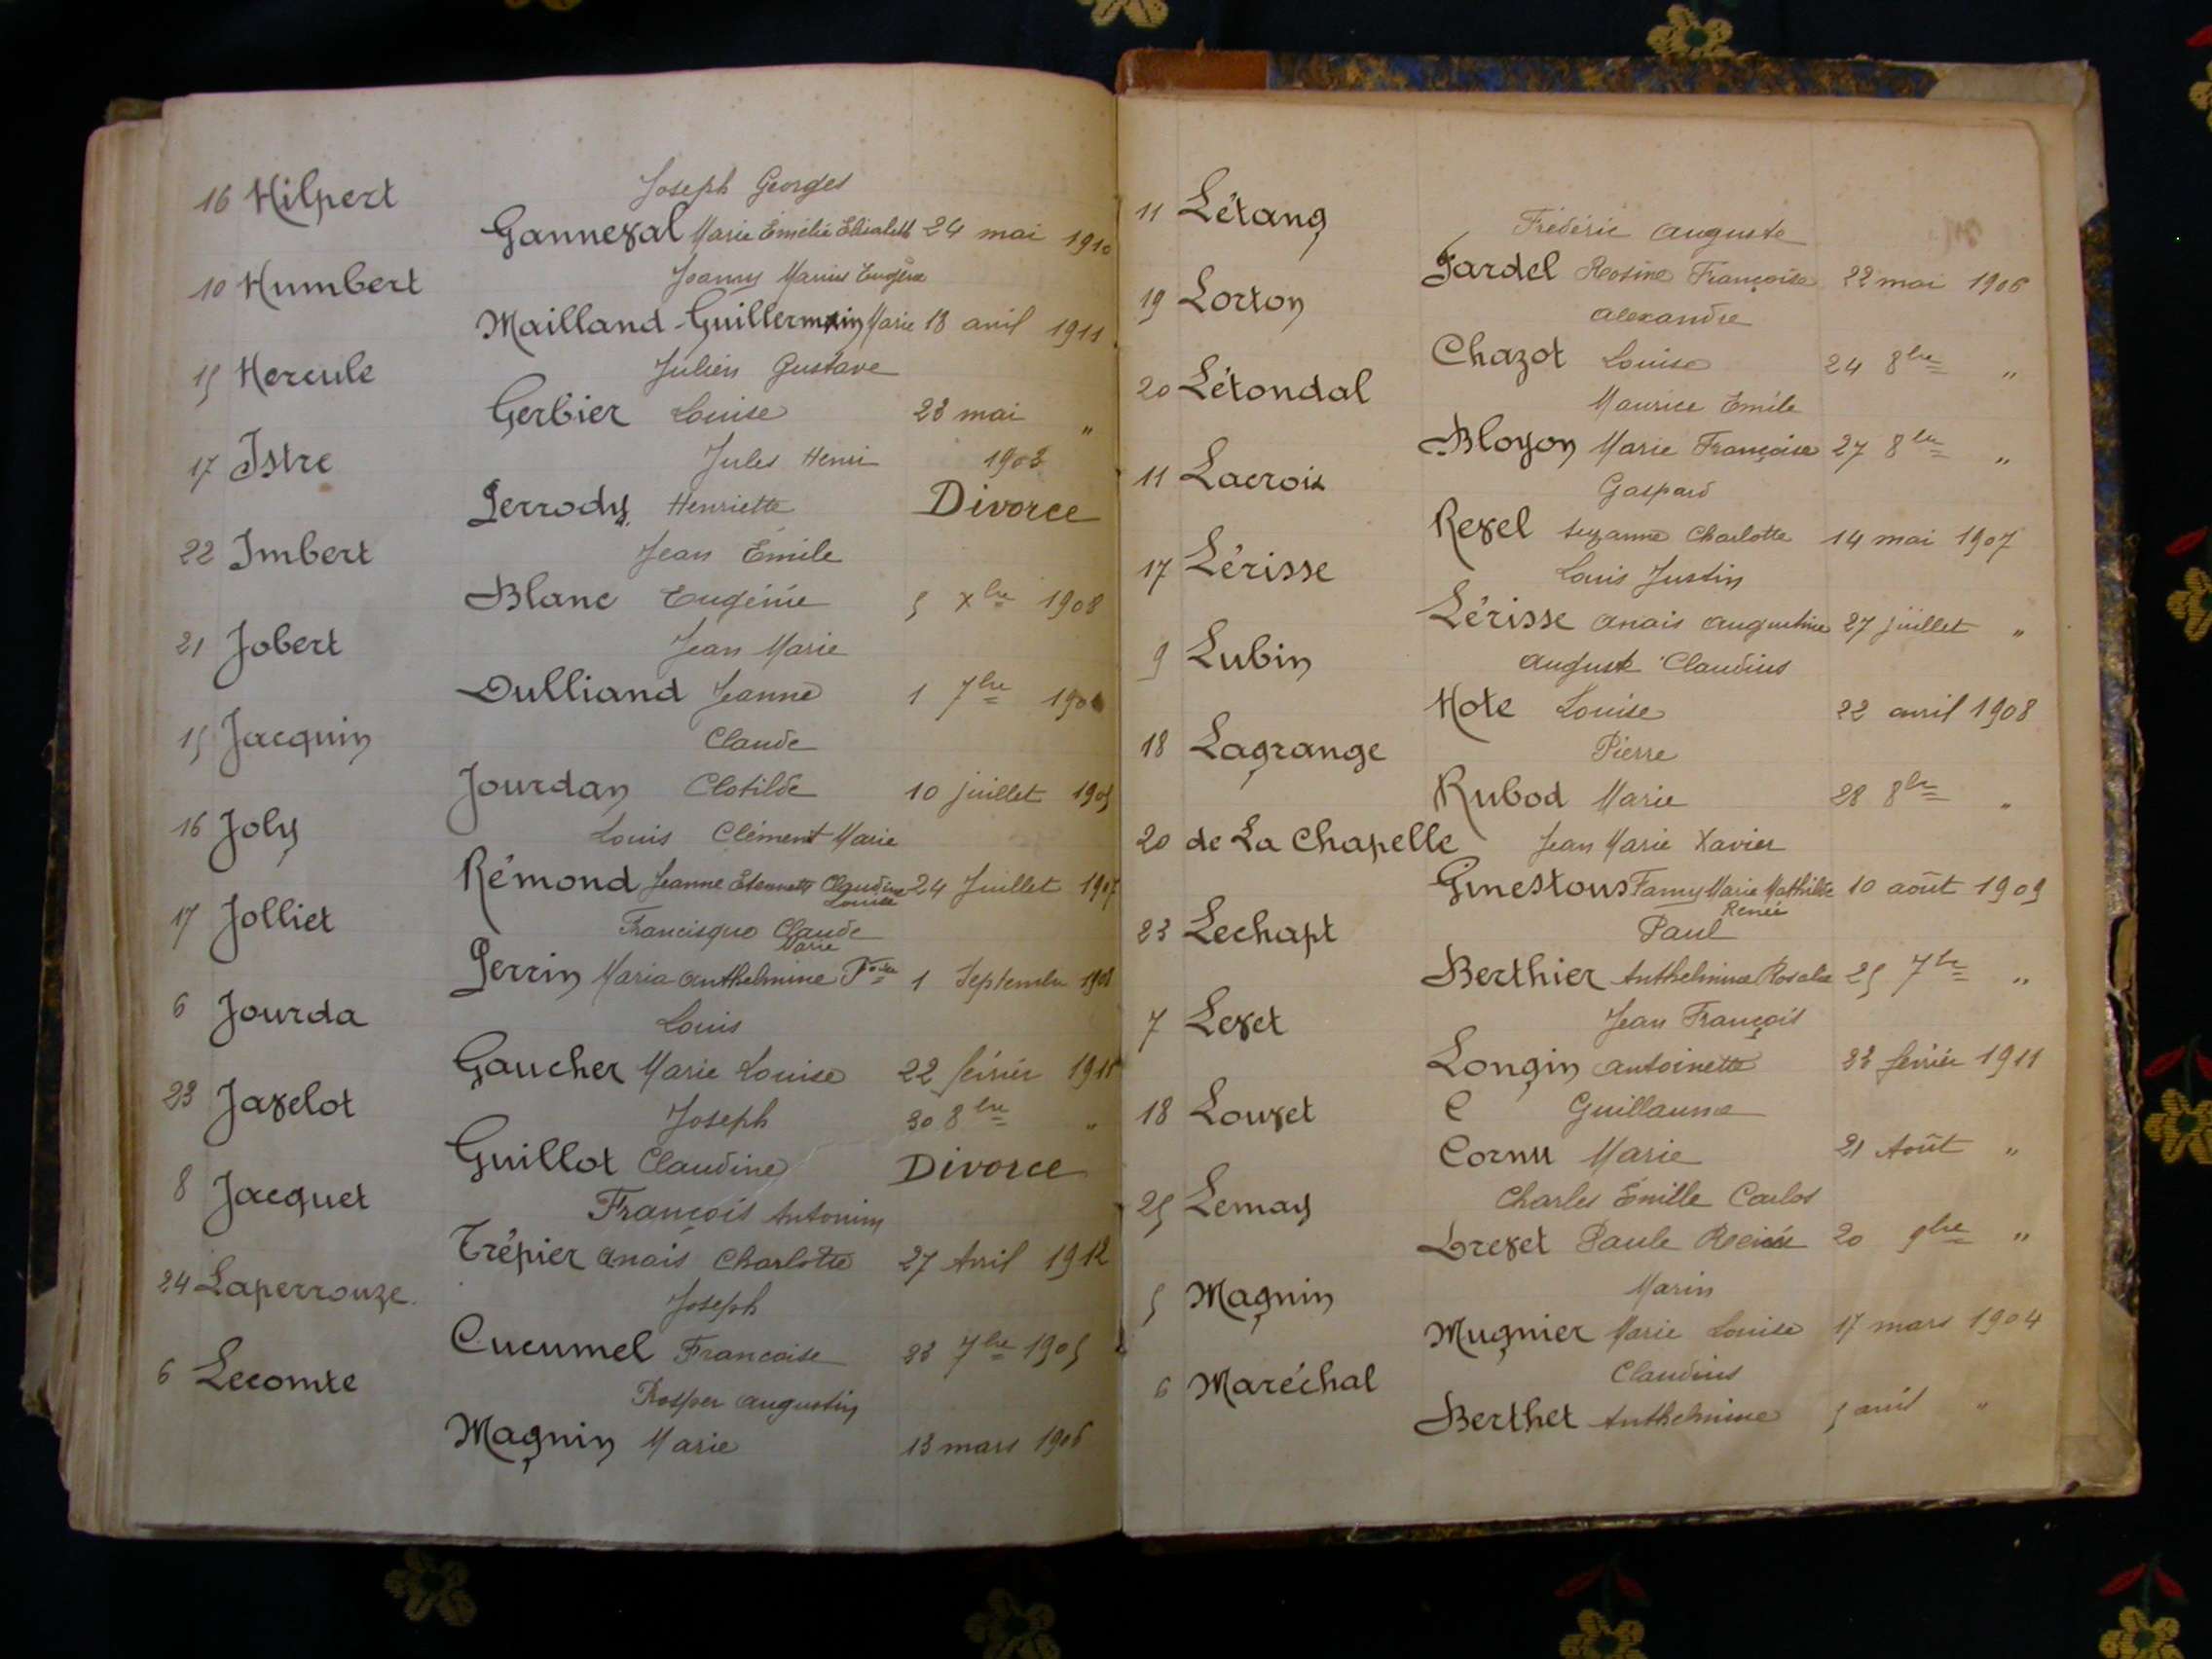 16 Hilpert Joseph Georges
Ganneval Marie Émélie Elisabeth 24 mai 1910
10 Humbert Joanny Marius Eugène
Mailland-Guillermin Marie 18 avril 1911
15 Hercule Julien Gustave
Gerbier Louise 23 mai "
17 Istre Jules Henri 1903
Perrody Henriette Divorce
22 Imbert Jean Émile
Blanc Eugénie 5 Xbre 1908
21 Jobert Jean Marie
Dulliand Jeanne 1 7bre
15 Jacquin Claude
Jourdan Clotilde 10 juillet 1905
16 Joly Louis Clément Marie
Rémond Jeanne Etiennette Claudine 24 Juillet 1907
Louise
17 Jolliet Francisque Claude
Marie
Perrin Maria Anthelmine Foise 1 Septembre 1908
6 Jourda Louis
Gaucher Marie Louise 22 février 1911
23 Javelot Joseph 30 8bre "
Guillot Claudine Divorce
8 Jacquet François Antonin
Trépier Anais Charlotte 27 Avril 1912
24 Laperrouze. Joseph
Cucumel Francoise 23 7bre 1905
6 Lecomte Prosper Augustin
Magnin Marie 13 mars 1906
11 Létang Frédéric Auguste
Fardel Rosine Françoise 22 mai 1906
19 Lorton Alexandre
Chazot Louise 24 8bre "
20 Létondal Maurice Emile
Bloyon Marie Françoise 27 8bre "
11 Lacroix Gaspard
Revel Suzanne Charlotte 14 mai 1907
17 Lérisse Louis Justin
Lérisse Anais Augustine 27 juillet "
9 Lubin August Claudius
Hote Louise 22 avril 1908
18 Lagrange Pierre
Rubod Marie 28 8bre "
20 de La Chapelle Jean Marie Xavier
Ginestous Fanny Marie Mathilde 10 août 1909
Renée
23 Lechapt Paul
Berthier Anthelmine Rosalie 25 7bre "
7 Levet Jean François
Longin Antoinette 23 février 1911
18 Louvet C Guillaume
Cornu Marie 21 Août "
25 Lemay Charles Émille Carlos
Drevet Paule Renée 20 9bre "
5 Magnin Marin
Mugnier Marie Louise 17 mars 1904
6 Maréchal Claudius
Berthet Anthelmine 5 avril "